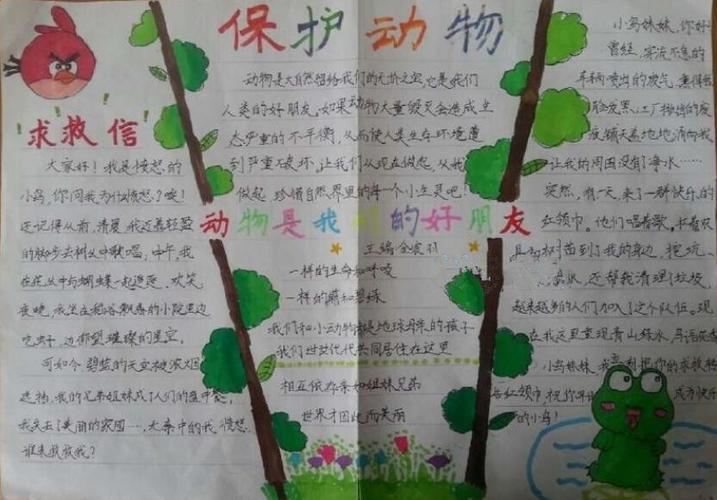 保护动物
动物是大自然留给我们的无价之宝,它是我们
人类的好朋友,如果动物大量毁灭会造成生
态严重的不平衡,从而使人类生存环境遭
到严重破坏,让我们从现在做起,从我
做起,珍惜自然界里的每一个小生灵吧!
!求!救!信!
大家好!我是愤怒的
小鸟,你问我为什么愤怒?唉!
还记得从前,清晨,我迈着轻盈
的脚步去树丛中歌唱;中午,我
在花丛中与蝴蝶一起逗逗、欢笑
夜晚,我坐在稻谷飘香的小院里边
吃虫子,边仰望璀璨的星空。
可如今碧蓝的天空被浓烟
遮挡,我的兄弟姐妹成了人们的盘中餐,
我失去了美丽的家园…,大家中的我愤怒,
谁来救救我?
动物是我们的好朋友
主编
一样的生命和呼吸
一样的
我们和小动物都是地球母亲的孩子
我们世世代代共同居住在这里
相互依存亲如姐妹兄弟
世界才因此而美丽
小鸟妹妹,你好!
曾经,穿流不息的
车辆喷出的废气,熏得我
脸发黑,工厂排出的废
铺天盖地地涌向我
让我的周围没有了净水……
突然,有一天,来了一群快乐的
红领巾。他们唱着歌,
树苗到了我的身边,挖坑、
浇水,还帮我清理垃圾,
越来越多的人们加入了这个队伍。现
在我这里重现青山绿水,鸟语花
小鸟妹妹,我
红领巾,祝你早 成为快乐
的小鸟!